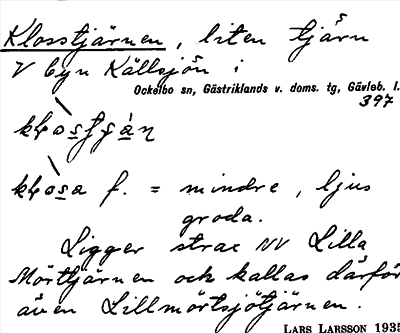 Klosstjärnen, liten tjärn
V byn Källsjön i
Ockelbo sn, Gästriklands v. doms. tg, Gävleb. l.
397
f. = mindre, ljus
groda.
Ligger strax NV Lilla
Mörttjärnen och kallas därför
även Lillmörtsjötjärnen.
LARS LARSSON 1935